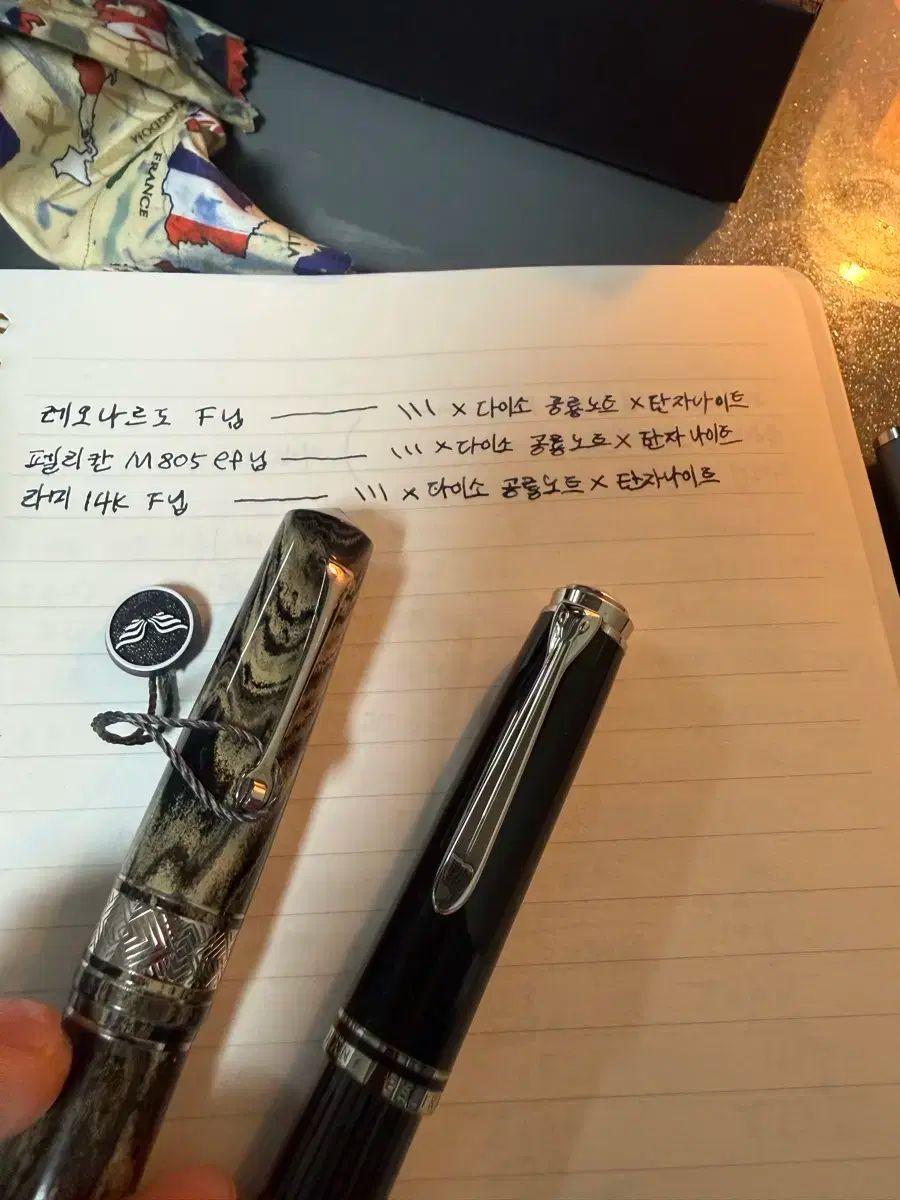 KINGDOM
FRANCE
레오나르도 F닙 ——— \\\ × 다이소 공룡노트 × 탄자나이트
펠리칸 M805 ef닙 ——— \\\ × 다이소 공룡노트 × 탄자나이트
라미 14K F닙 ——— \\\ × 다이소 공룡노트 × 탄자나이트